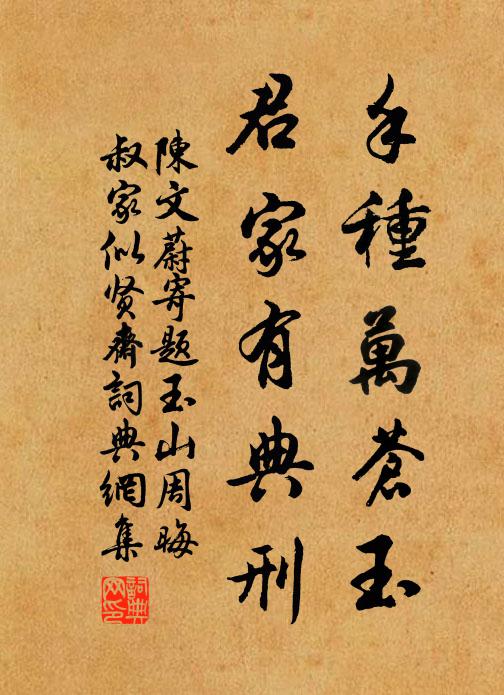 手種萬蒼玉
君家有典刑
陳文蔚寄題玉山周晦
叔家似贤齋詞典網集
詞典网印